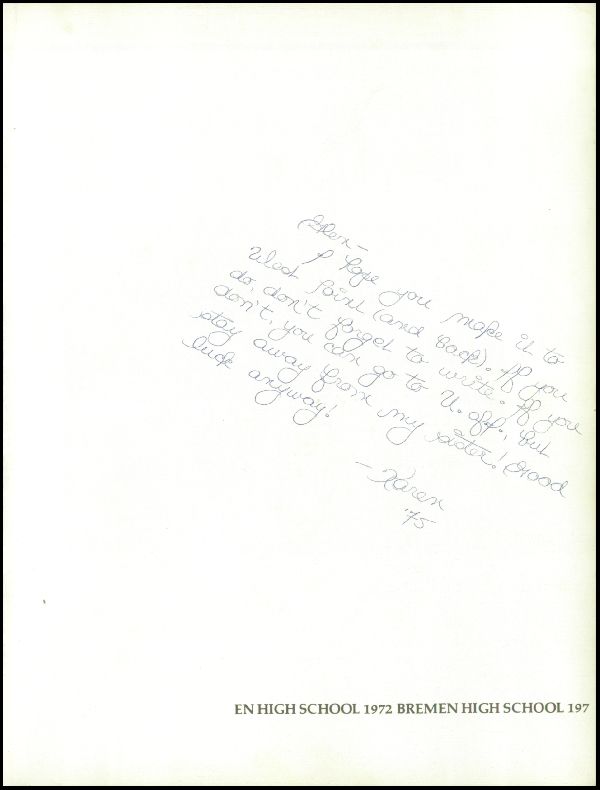 Glen-
I hope you make it to
West Point (and back). If you
do, don't forget to write. If you
don't, you can go to U. of I., but
stay away from my sister! Good
luck anyway!
- Karen
'75
EN HIGH SCHOOL 1972 BREMEN HIGH SCHOOL 197